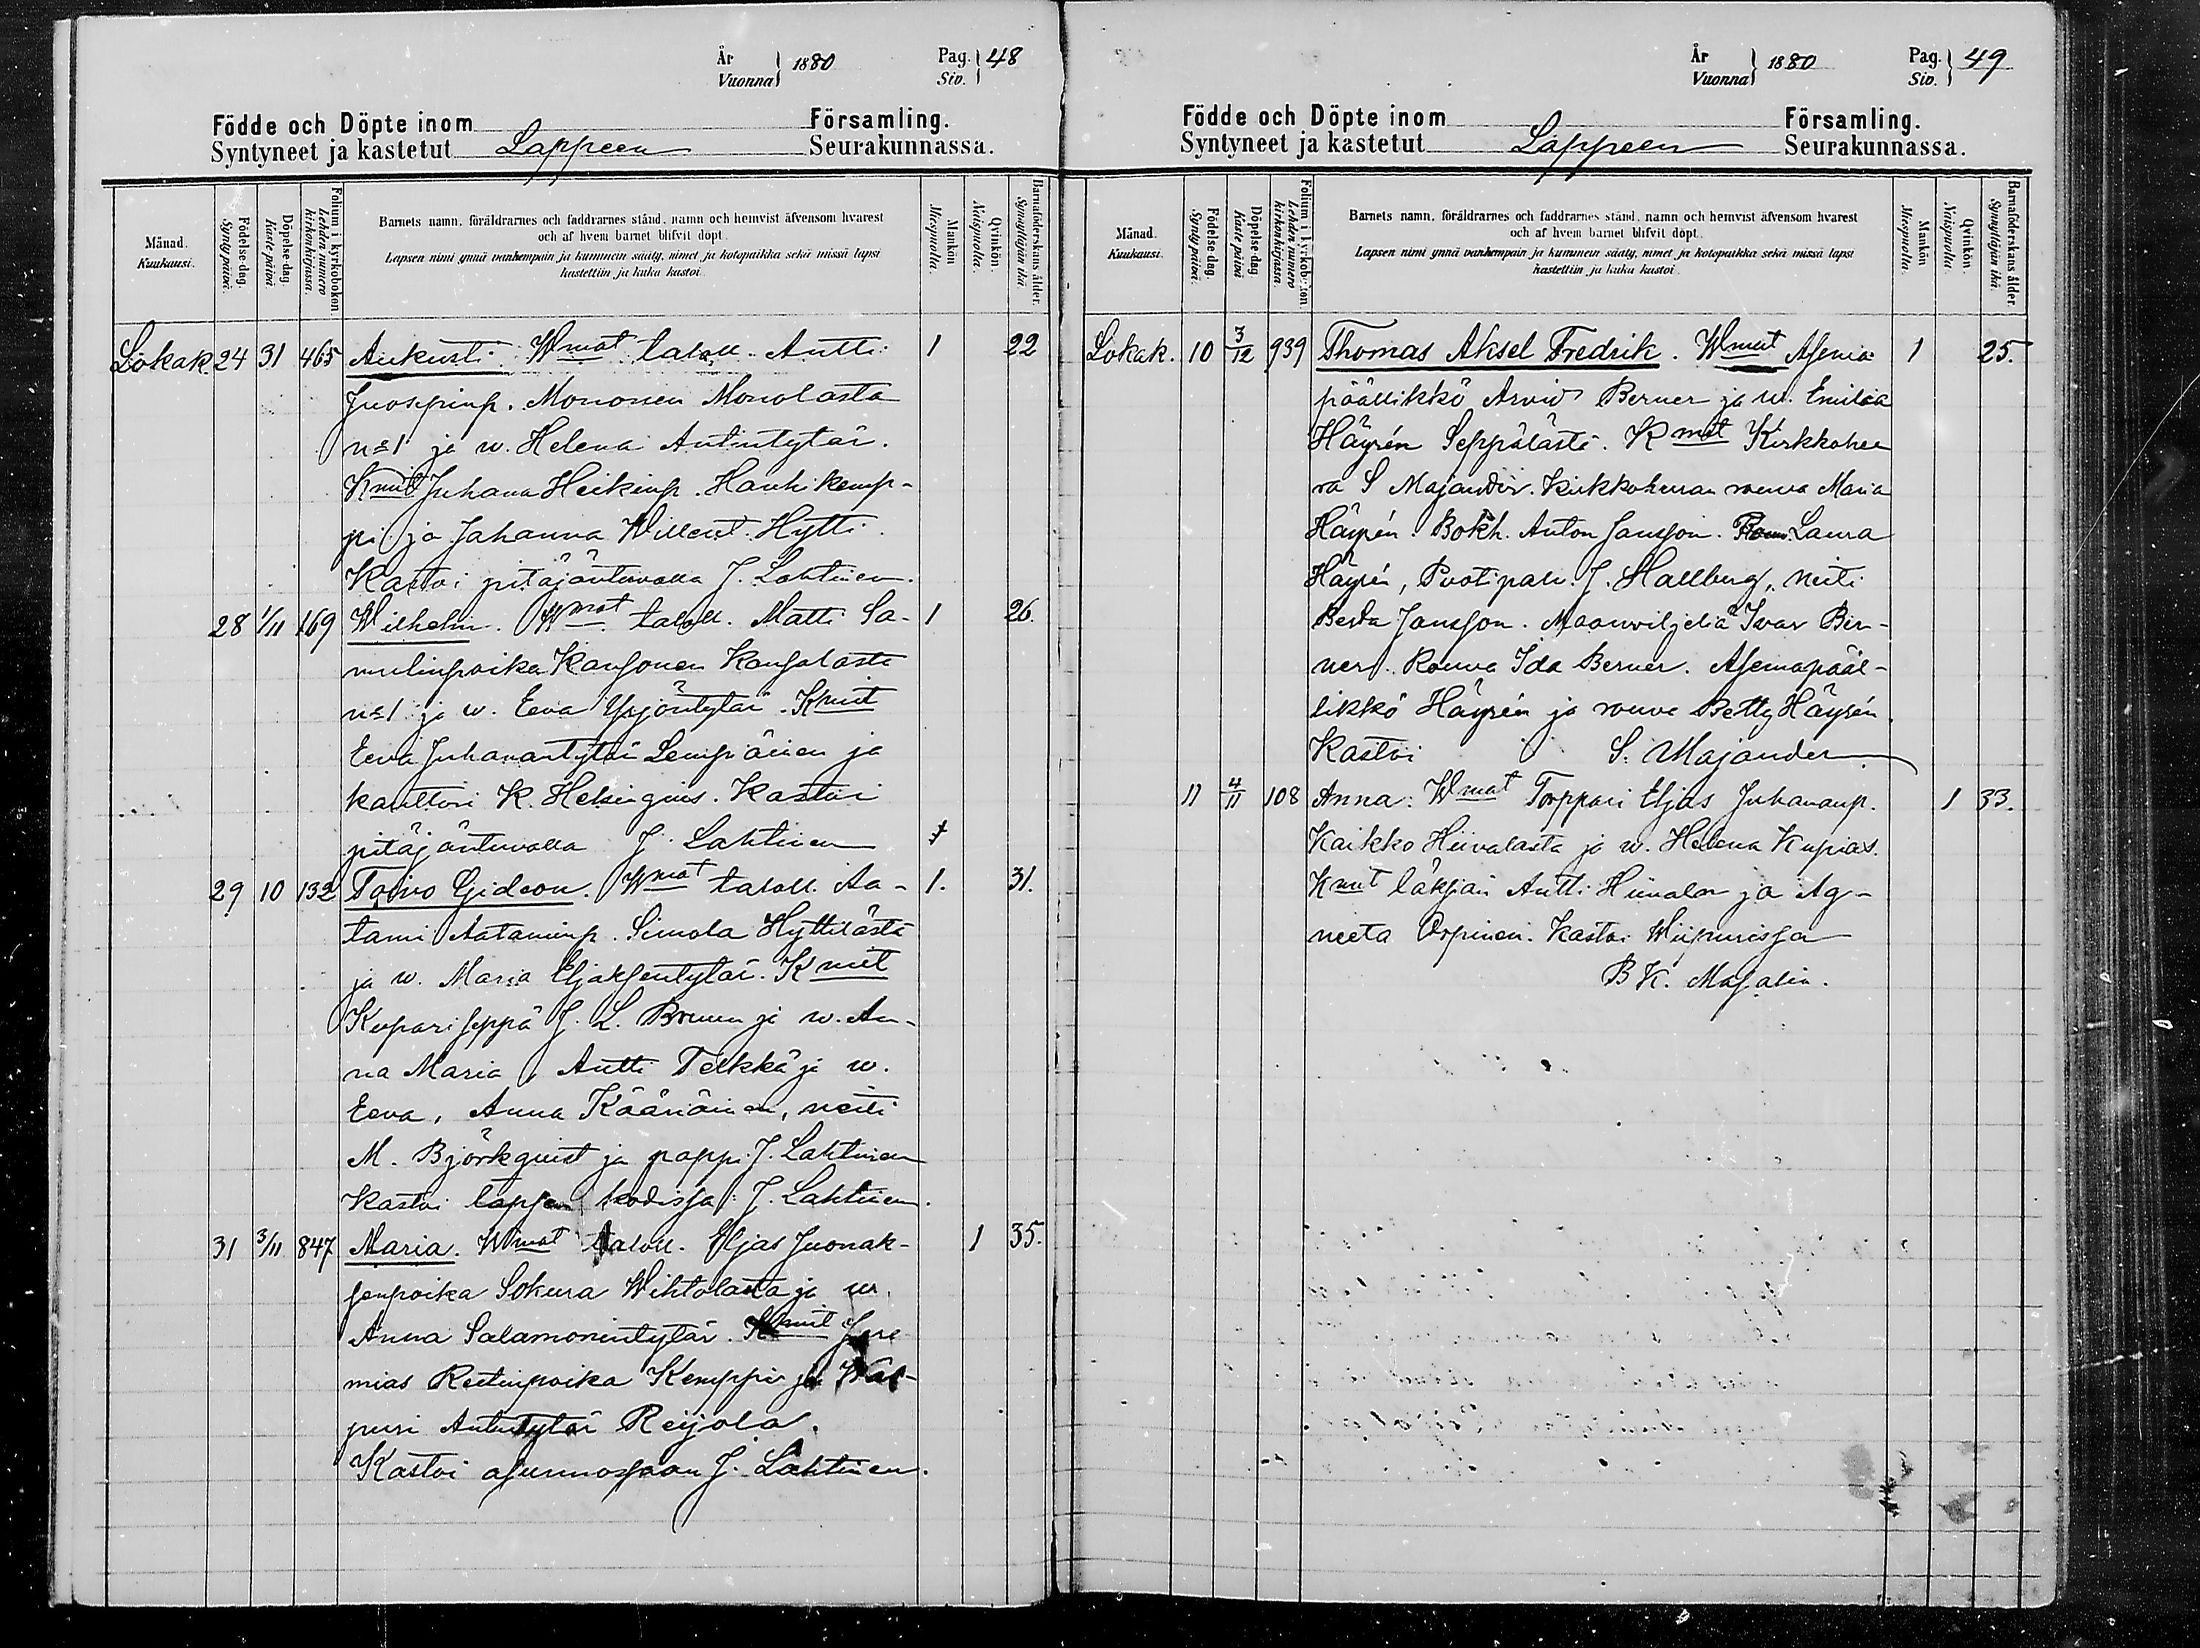 År
Vuonna
1880
Pag.
Siv.
48
Födde och Döpte inom Församling.
Syntyneet ja kastetut Lappeen Seurakunnassa.
Månad.
Kuukausi.
Födelse-dag.
Syntypäivä.
Döpelse-dag.
Kastepäivä.
Folium i kyrkoboken.
Lehden numero
kirkonkirjassa.
Barnets namn, föräldrarnes och faddrarnes stånd, namn och hemvist äfvensom hvarest
och af hvem barnet blifvit döpt.
Lapsen nimi ynnä vanhempain ja kummein sääty, nimet ja kotopaikka sekä missä lapsi
kastettiin ja kuka kastoi.
Mankön
Miespuolta.
Qvinkön.
Naispuolta.
Barnaföderskans ålder.
Synnyttäjän ikä.
Lokak. 24 31 465 Aukusti. Wmat taloll. Antti 1 22
Juosepinp. Mononen Monolasta
n=1 ja w. Helena Antintytär.
Kmit Juhana Heikinp. Hanhikemp-
pi ja Johanna Willent. Hytti.
Kastoi pitäjäntuvalla J. Lahtinen.
28 1/11 169 Wilhelm. Wmat taloll. Matti Sa- 1 26.
mulinpoika Kansonen Kansolasta
n=1 ja w. Eeva Yrjöntytär. Kmit
Eeva Juhanantytär Lempiäinen ja
kanttori K. Helsingius. Kastoi
pitäjäntuvalla J. Lahtinen
29 10 132 Toivo Gideon. Wmat taloll. Aa- 1. 31.
tami Aataminp. Simola Hyttilästä
ja w. Maria Eljaksentytär. Kmit
Kupariseppä J. L. Brunn ja w. An-
na Maria, Antti Telkkä ja w.
Eeva, Anna Kääriäinen, neiti
M. Björkquist ja pappi J. Lahtinen
Kastoi lapsen kodissa: J. Lahtinen.
31 3/11 847 Maria. Wmat taloll. Eljas Juonak- 1 35.
senpoika Sokura Wihtolasta ja w.
Anna Salamonintytär. Kmit Jere
mias Reetinpoika Kemppi ja Wal-
puri Antintytär Reijola.
Kastoi asunnossaan J. Lahtinen.
År
Vuonna
1880
Pag.
Siv.
49
Födde och Döpte inom Församling.
Syntyneet ja kastetut Lappeen Seurakunnassa.
Månad.
Kuukausi.
Födelse-dag.
Syntypäivä.
Döpelse-dag.
Kastepäivä.
Folium i kyrkoboken.
Lehden numero
kirkonkirjassa.
Barnets namn, föräldrarnes och faddrarnes stånd, namn och hemvist äfvensom hvarest
och af hvem barnet blifvit döpt.
Lapsen nimi ynnä vanhempain ja kummein sääty, nimet ja kotopaikka sekä missä lapsi
kastettiin ja kuka kastoi.
Mankön
Miespuolta.
Qvinkön.
Naispuolta.
Barnaföderskans ålder.
Synnyttäjän ikä.
Lokak. 10 3/12 939 Thomas Aksel Fredrik. Wmat Asema 1 25.
päällikkö Arvid Berner ja w. Emilia
Häyrén Seppälästä. Kmit Kirkkoher
ra S Majander. Kirkkoherran rouva Maria
Häyrén. Bokh. Anton Jansson. Laura
Häyrén, Puotipalv. J. Hallberg, neiti
Berta Jansson. Maanviljeliä Ivar Ber-
ner. Rouva Ida Berner. Asemapääl-
likkö Häyrén ja rouva Betty Häyrén.
Kastoi S. Majander
11 4/11 108 Anna. Wmat Torppari Eljas Juhananp. 1 33.
Kaikko Hiivalasta ja w. Helena Kupias.
Kmit läksiäin Antti Hiivala ja Ag-
neeta Orpinen. Kastoi Wiipurissa
B K. Masalin.